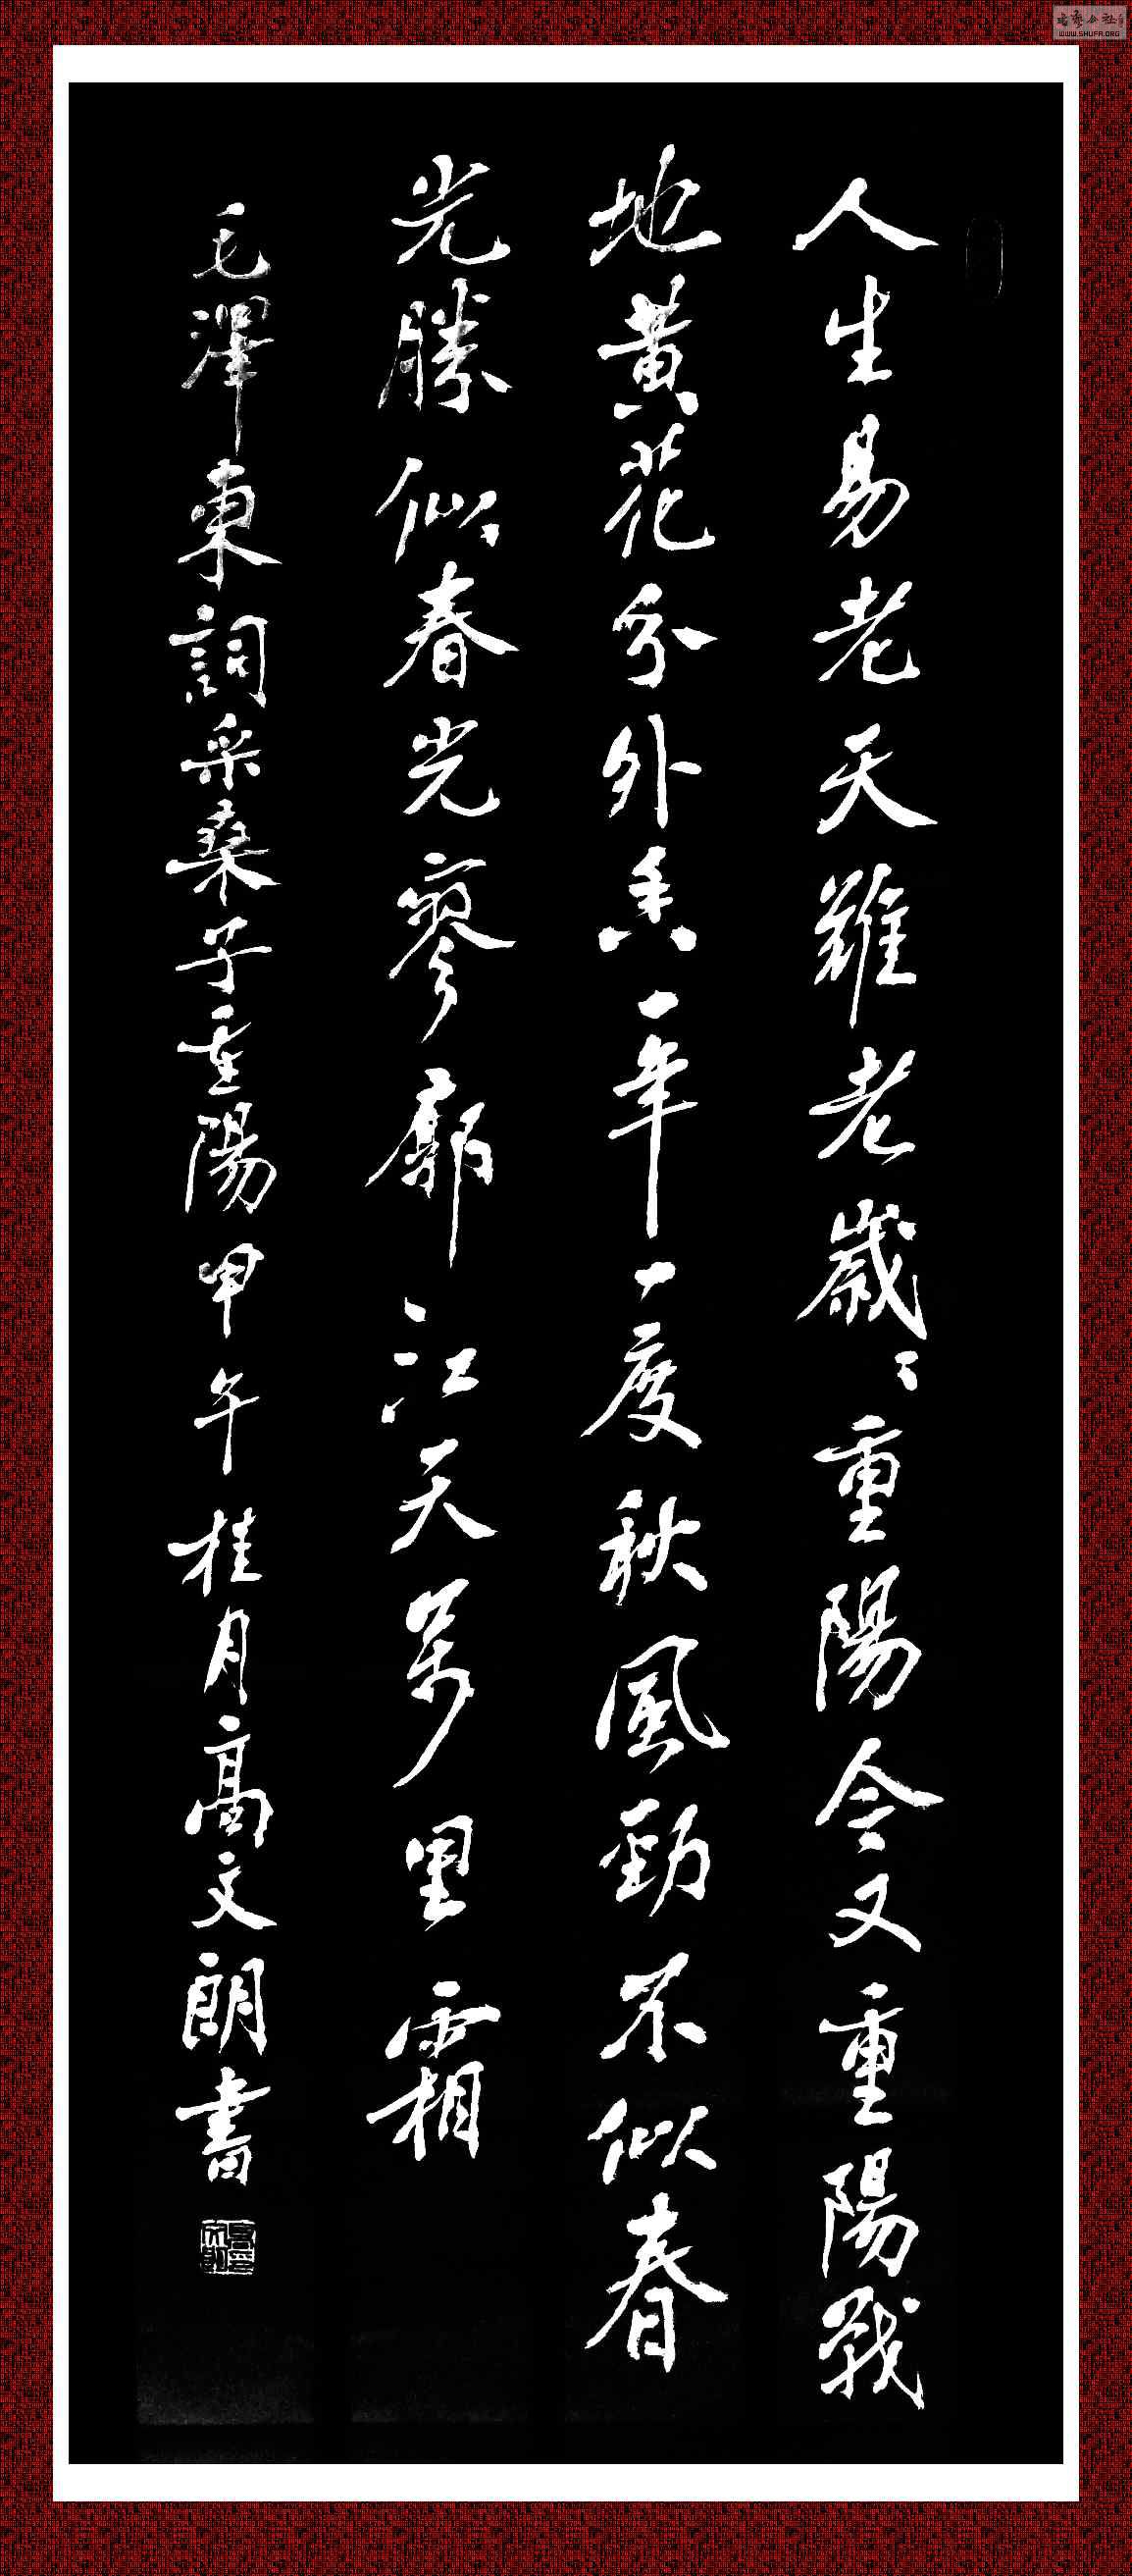 人生易老天難老歲〻重陽今又重陽戰
地黄花分外香一年一度秋風勁不似春
光勝似春光寥廓江天萬里霜
毛澤東詞采桑子重陽甲午桂月高文朗書
WWW.SHUFA.ORG